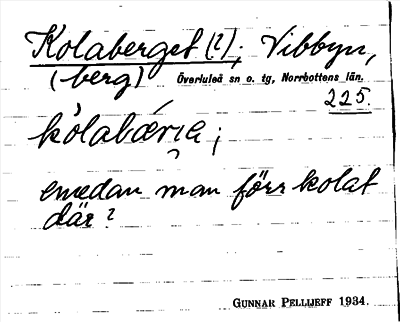 Kolaberget (?); Vibbyn,
(berg) Överluleå sn o. tg, Norrbottens län.
225.
emedan man förr kolat
där?
GUNNAR PELLIJEFF 1934.